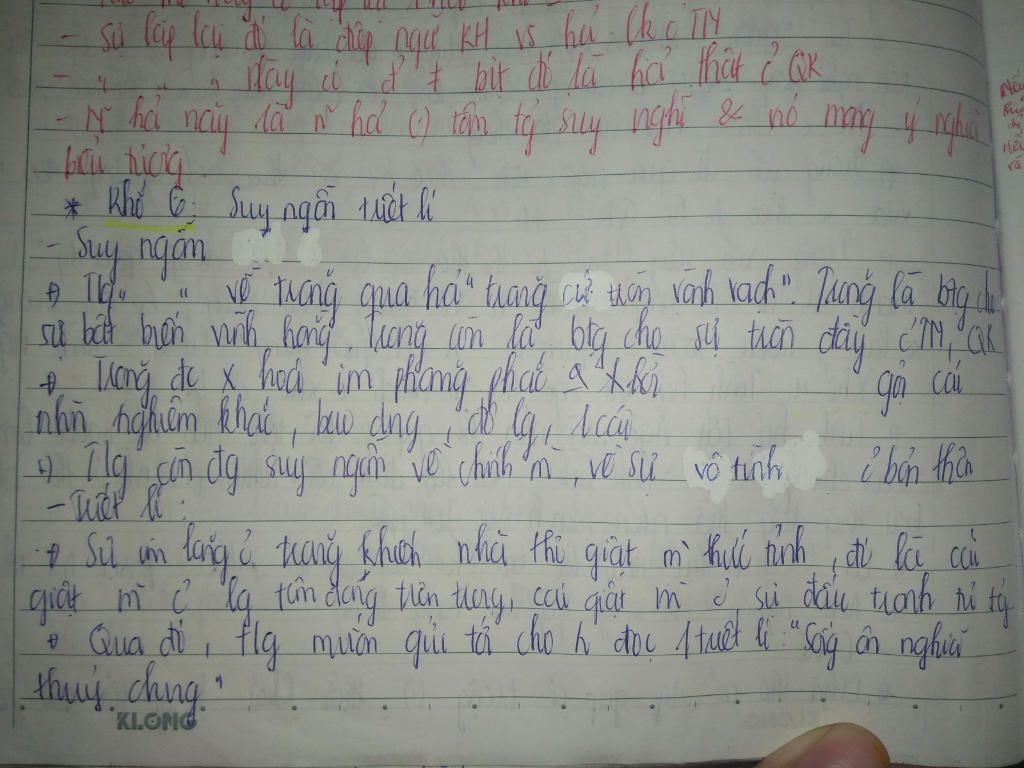 - Sự lặp lại đó là điệp ngữ KH vs hả lk c̉ TN
- " " " này có đ t bit đó là hả thật c̉ QK
- N~ hả này là n~ hả (:) tâm tg suy nghĩ & nó mang ý nghĩa
biểu tượng
* Khổ 6: Suy ngẫm triết lí
- Suy ngẫm
+ Tlg " " về trăng qua hả "trăng cứ tròn vành vạch". Trăng là btg cho
sự bất biến vĩnh hằng. Trăng còn là btg cho sự tròn đầy c̉ TN, QK
+ Trăng đc x hoá im phăng phắc gợi cái
nhìn nghiêm khắc, bao dng, độ lg, 1 cái
+) Tlg còn đg suy ngẫm về chính m`, về sự vô tình c̉ bản thân
- Triết lí:
+ Sự im lặng c̉ trăng khiến nhà thơ giật m` thức tỉnh, đó là cái
giật m` c̉ lg tâm đáng trân trọng, cái giật m` c̉ sự đấu tranh tư tg
+ Qua đó, tlg muốn gửi tới cho n đọc 1 triết lí: "Sống ân nghĩa
thuỷ chung"
KLONG